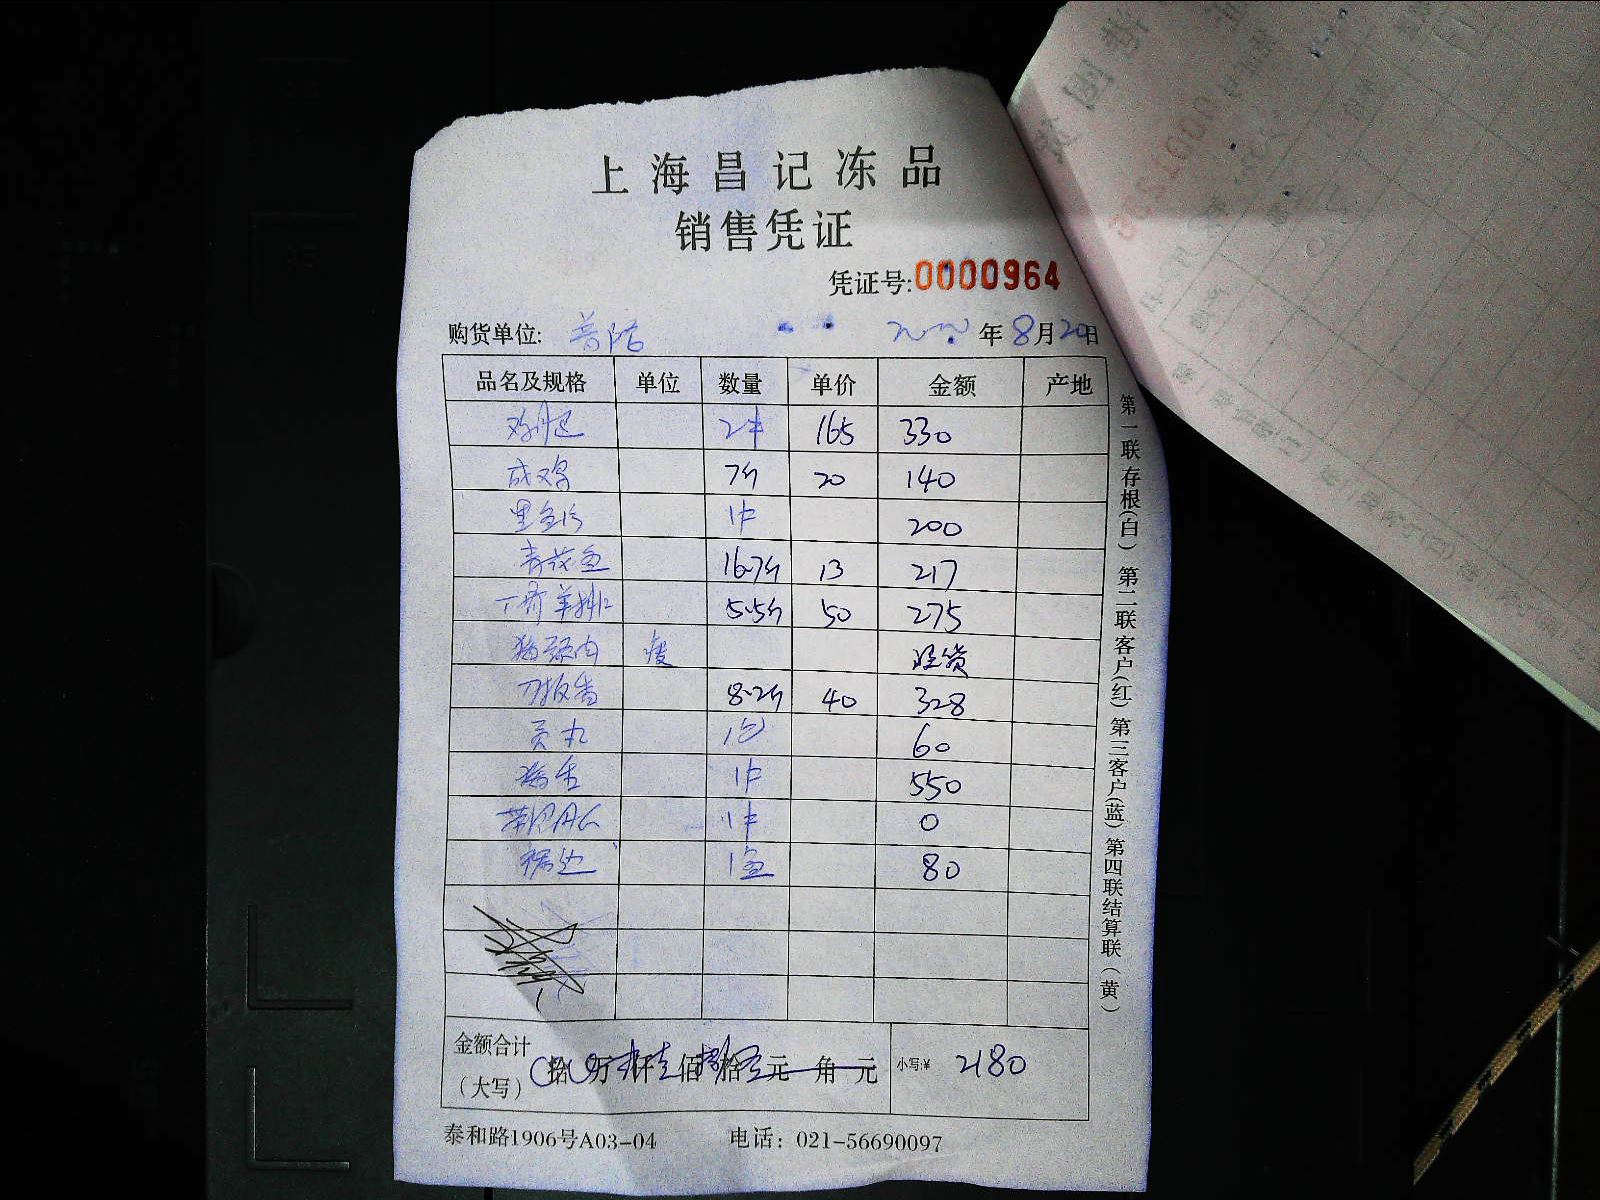 上海昌记冻品
销售凭证
凭证号:0000964
购货单位: 普陀 年8月20日
品名及规格 单位 数量 单价 金额 产地
2件 165 330
成鸡 7斤 20 140
黑鱼片 1件 200
青花鱼 16.7斤 13 217
丁骨羊排 5.5斤 50 275
猪颈肉 瘦 旺货
刀板香 8.2斤 40 328
贡丸 1包 60
1件 550
1件 0
裙边 1盒 80
金额合计
(大写) 拾 万 仟 佰 拾 元 角 元 小写:¥ 2180
泰和路1906号A03-04 电话: 021-56690097
第一联存根(白) 第二联客户(红) 第三客户(蓝) 第四联结算联(黄)